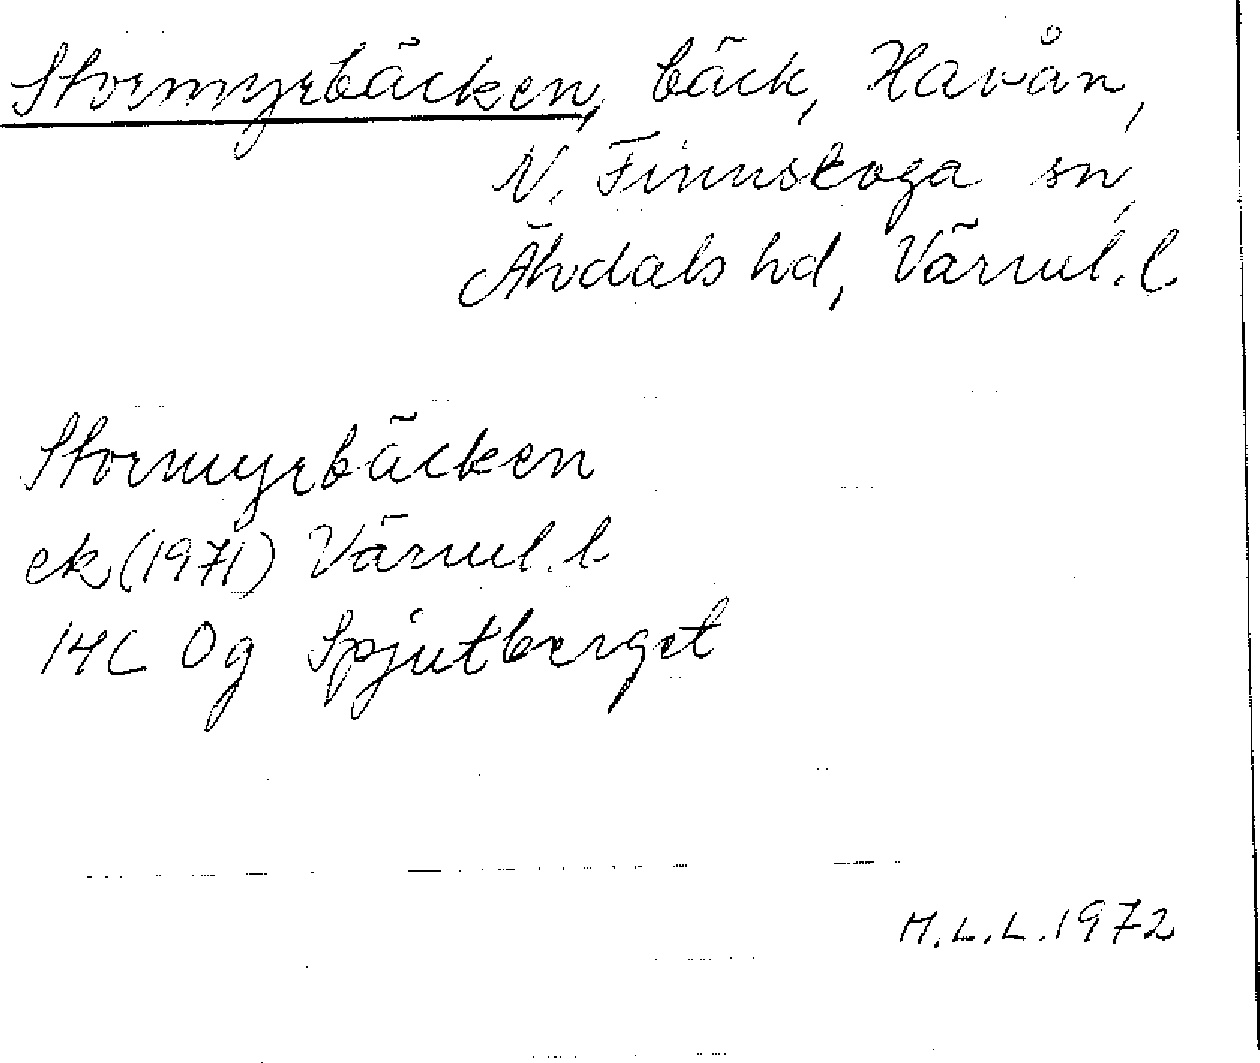 Stormyrbäcken, bäck, Havån,
N. Finnskoga sn,
Älvdals hd, Värml. l.
Stormyrbäcken
ek (1971) Värml. l.
14C 0g Spjutberget
M.L.L. 1972